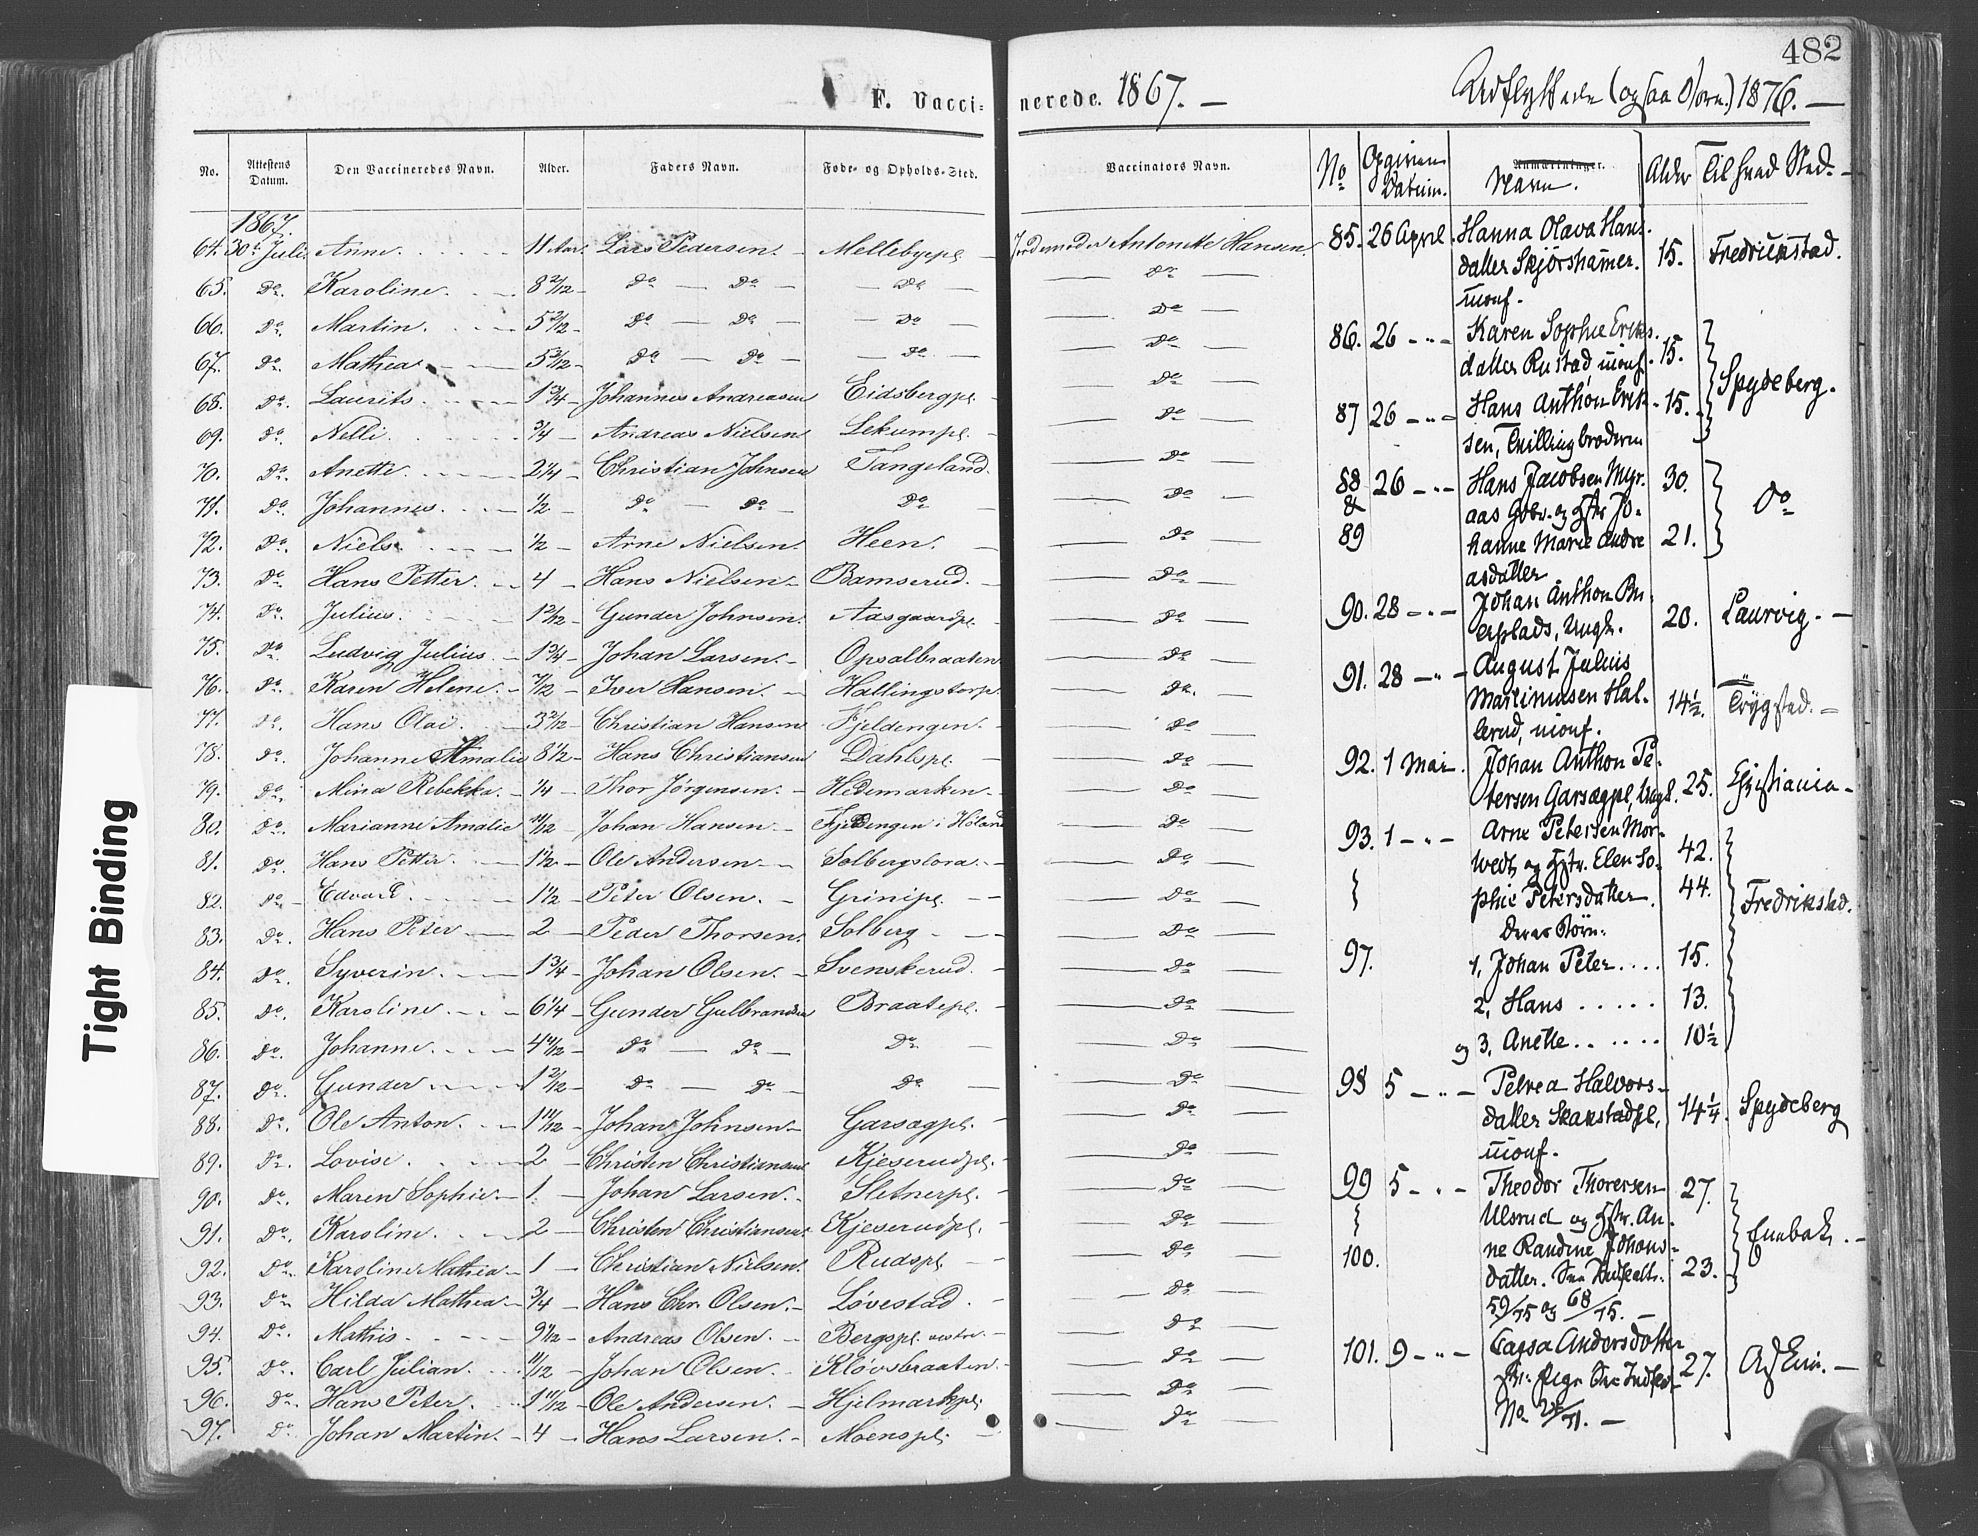 482
F. Vaccinerede. 1867. —
Udflyttede (ogsaa Børn.) 1876. —
No. Attestens Datum. Den Vaccineredes Navn. Alder. Faders Navn. Føde- og Opholds-Sted. Vaccinators Navn.
1867.
64. 30te Juli. Anne. 11 Aar. Lars Pedersen. Mellebyepl. Jordemoder Antonette Hansen.
65. Do. Karoline. 8 2/12 Do — Do — Do Do
66. Do. Martin. 5 2/12 Do — Do — Do Do
67. Do. Mathea 5 2/12 Do — Do — Do Do
68. Do. Laurits. 1 3/4 Johannes Andreasen Eidsbergpl. Do
69. Do. Nelli. 3/4 Andreas Nielsen Lekumpl. Do
70. Do. Anette 2 1/4 Christian Johnsen Tangeland. Do
71. Do. Johannes. 1/2 Do — Do — Do Do
72. Do. Niels. 1/2 Arne Nielsen. Heen. Do
73. Do. Hans Petter. 4 Hans Nielsen. Bamserud. Do
74. Do. Julius. 1 2/12 Gunder Johnsen. Aasgaardpl. Do
75. Do. Ludvig Julius. 1 3/4 Johan Larsen. Opsalbraaten Do
76. Do. Karen Helene. 7/12 Iver Hansen. Hallingstorp. Do.
77. Do. Hans Olai. 3 2/12 Christian Hansen Fjeldengen. Do
78. Do. Johanne Amalie 8 1/2 Hans Christiansen Dahlspl. Do
79. Do. Mina Rebekka. 1/4 Thor Jørgensen. Hedemarken. Do
80. Do. Marianne Amalie 10/12 Johan Hansen. Fjeldengen i Høland Do
81. Do. Hans Petter. 1 1/2 Ole Andersen. Solbergstora. Do
82. Do. Edvard. 1 1/2 Peter Olsen. Grinipl. Do
83. Do. Hans Peter 2 Peder Thorsen. Solberg Do
84. Do. Syverin. 1 3/4 Johan Olsen. Svenskerud. Do
85. Do. Karoline. 6 1/4 Gunder Gulbrandsen Braatepl. Do
86. Do. Johanne. 4 4/12 Do — Do — Do Do
87. Do. Gunder 1 2/12 Do — Do Do Do
88. Do. Ole Anton. 1 11/12 Johan Johnsen Garsægpl. Do
89. Do. Lovise. 2 Christen Christiansen Kjeserudpl. Do
90. Do. Maren Sophie. 1. Johan Larsen. Sletnerpl. Do
91. Do. Karoline. 2 Christen Christiansen. Kjeserudpl. Do
92. Do. Karoline Mathea 1 Christian Nielsen. Rudspl. Do
93. Do Hilda Mathea 3/4 Hans Chr. Olsen. Løvestad. Do
94. Do. Mathis. 9 1/12 Andreas Olsen. Bergspl. vestre. Do
95. Do Carl Julian. 11/12 Johan Olsen. Kløvsbraaten. Do
96. Do. Hans Peter. 1 11/12 Ole Andersen. Hjelmarkpl. Do
97. Do. Johan Martin. 4 Hans Larsen. Moenspl. Do
No Opgivne Datum. Anmærkninger. Navn. Alder Til hvad Sted. —
85. 26 April. Hanna Olava Hans-
datter Skjørshamer. 15. Fredrikstad.
ukonf.
86. 26 Karen Sophie Eriks.
datter Rustad ukonf. 15. Spydeberg.
87 26 Hans Anthon Erik- 15.
sen, Tvillingbroderen
88 26 Hans Jacobsen Myr- 30.
& aas Gbr. og Hstr Jo- Do
89 hanne Marie Andre 21.
asdatter
90. 28 Johan Anthon Bu-
erplads, Ungk. 20. Laurvig. —
91. 28 August Julius
Martinusen Hal- 14 1/2. Trygstad. —
lerud, ukonf.
92. 1 Mai. Johan Anthon Pe-
tersen Garsægpl, Ungk. 25. Christiania —
93. 1 Arne Petersen Mor- 42.
wedt og Hstr. Elen So-
phie Petersdatter. 44. Fredrikstad.
Deres Børn.
97. 1, Johan Peter.... 15.
2, Hans ..... 13.
og 3, Anette...... 10 1/2
98 5 Petrea Halvors-
datter Skakstadpl, 14 1/4. Spydeberg
ukonf.
99 5 Theodor Thorersen 27.
Ulsrud og Hstr. An-
100. ne Randine Johans- Enebak. —
datter. See Indflytt. 23.
59/75 og 68/75. —
101. 9 Cajsa Andersdotter
Pige See Indfl. 27. Askim. —
No 24/71. —
Tight Binding